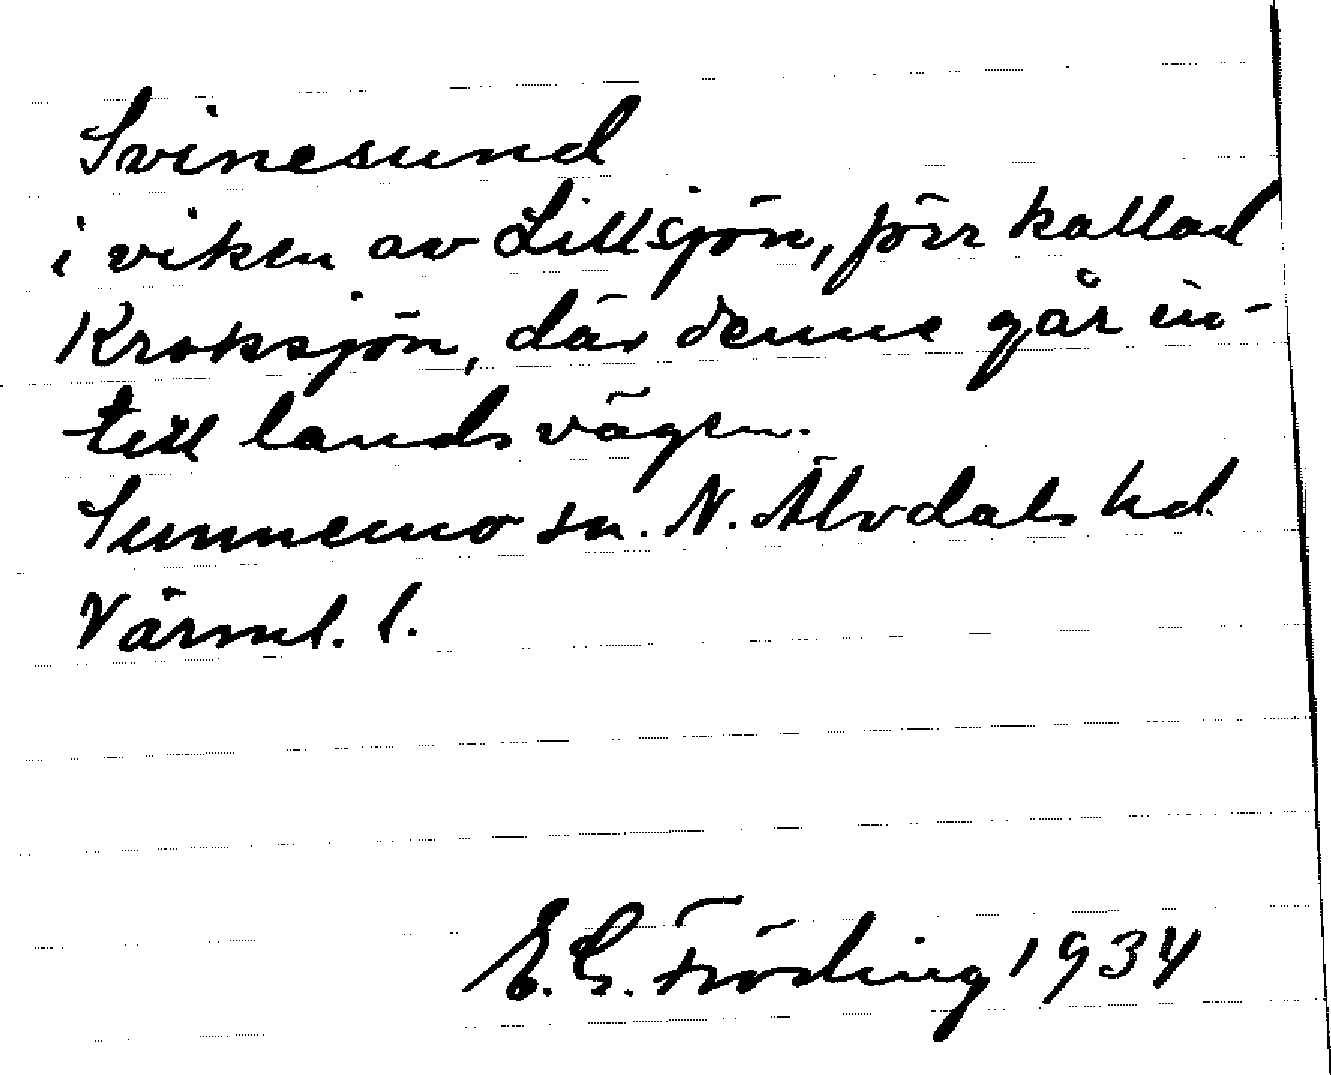 Svinesund
i viken av Lillsjön, förr kallad
Kroksjön, där denne går in-
till landsvägen.
Sunnemo sn. N. Älvdals hd.
Värml. l.
E. G. Fröding 1934